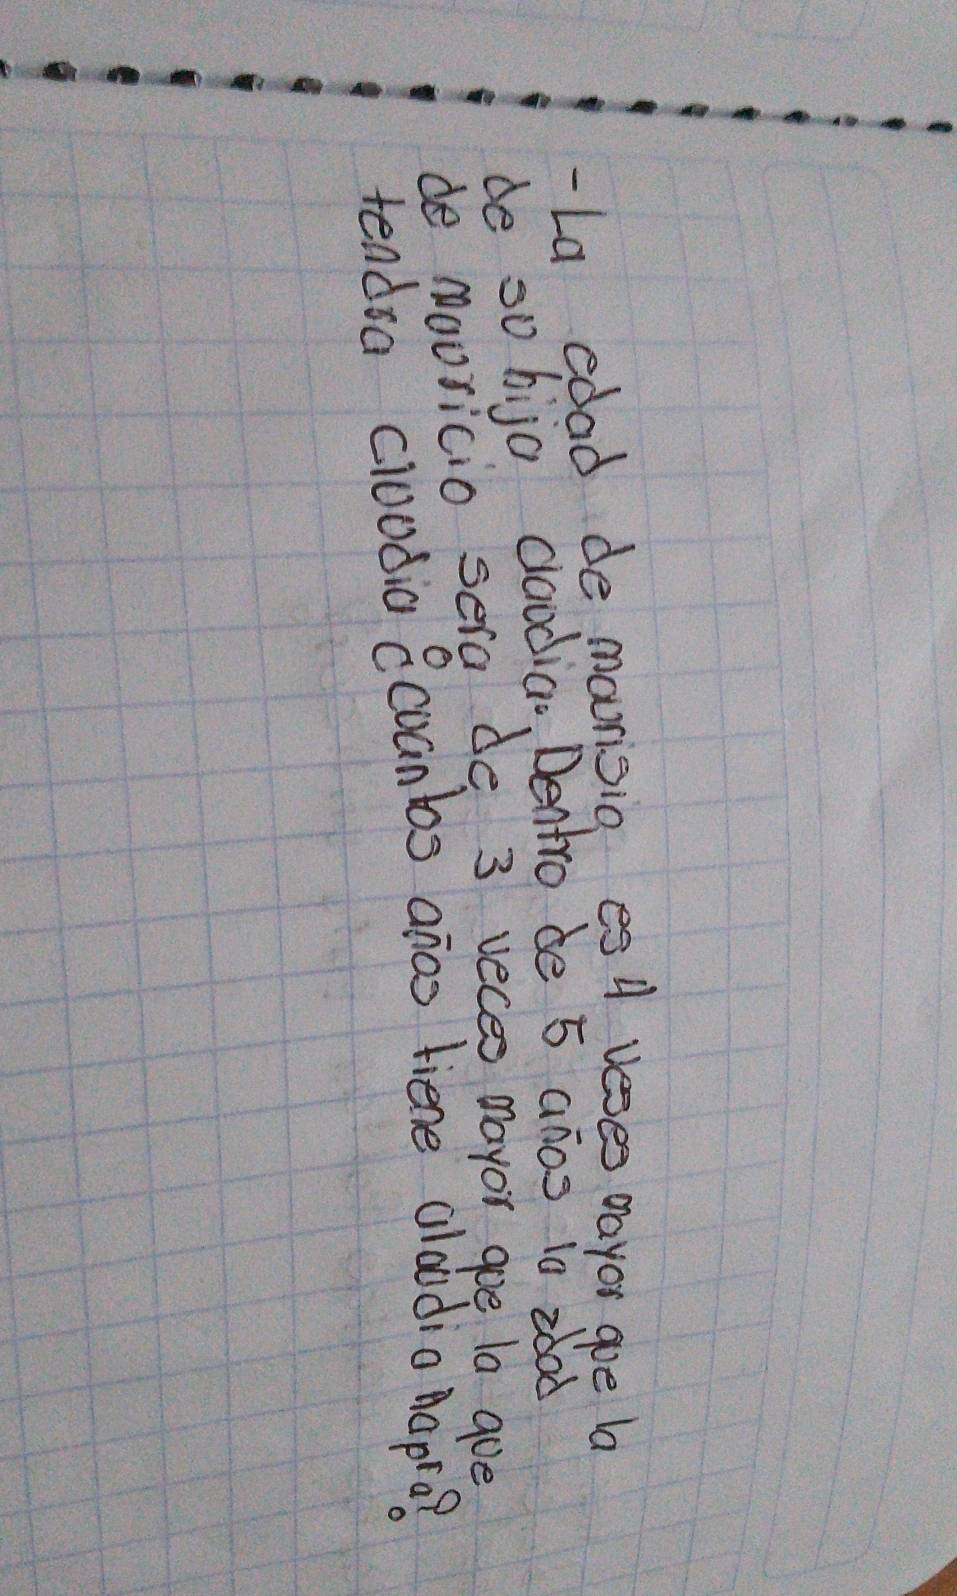 - La edad de maurisio es 4 veses mayor que la
de su hija claudia. Dentro de 5 años la edad
de mauricio sera de 3 veces mayor que la que
tendra claudia ¿cuantos años tiene claudia